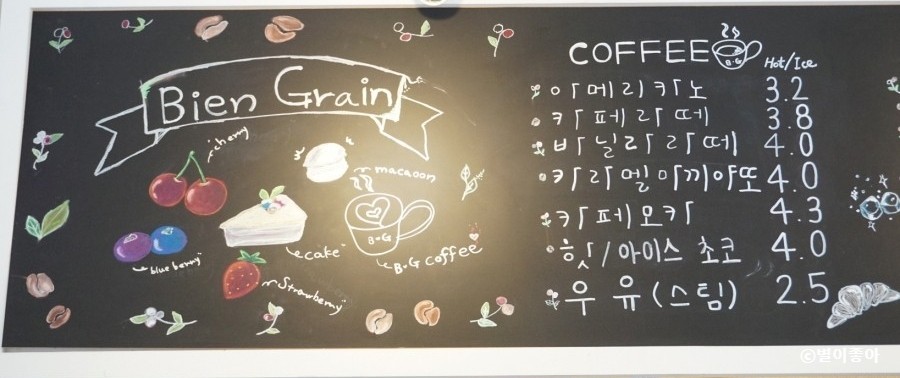 Bien Grain
cherry
macaoon
blueberry
cake
B·G
B·G coffee
strawberry
COFFEE
B·G
Hot/Ice
아메리카노 3.2
카페라떼 3.8
바닐라라떼 4.0
카라멜마끼아또 4.0
카페모카 4.3
핫/아이스 초코 4.0
우유(스팀) 2.5
©별이좋아